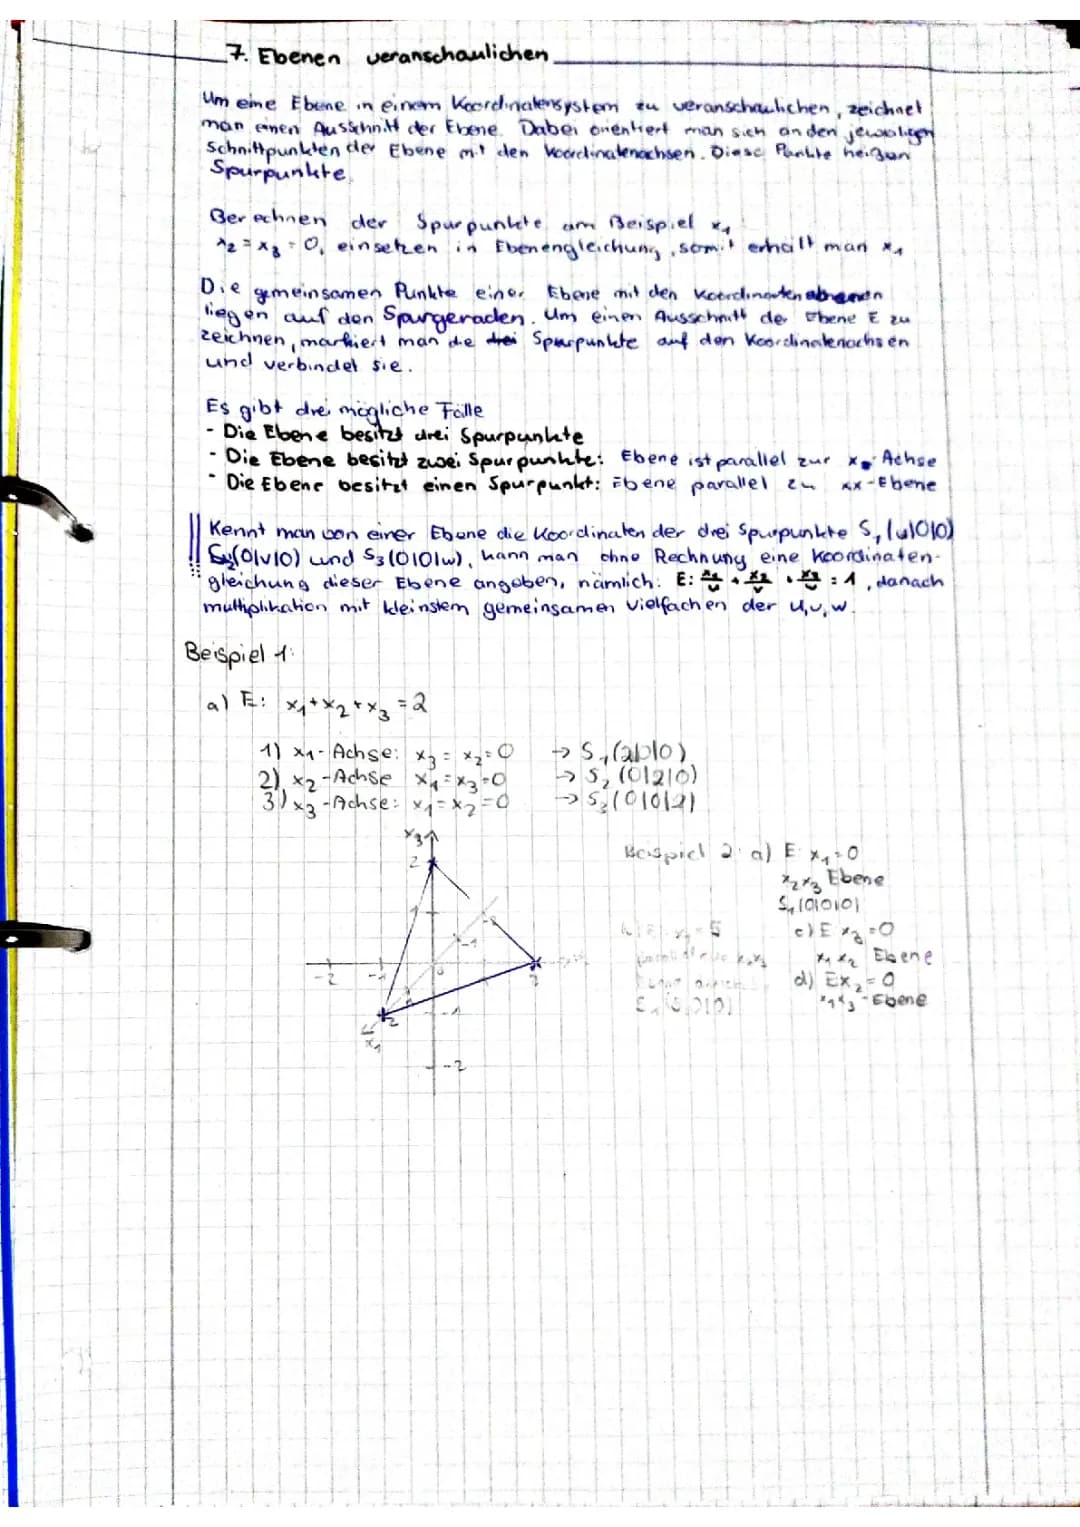 7. Ebenen veranschaulichen
Um eine Ebene in einem Koordinatensystem zu veranschaulichen, zeichnet
man einen Ausschnitt der Ebene. Dabei orientiert man sich an den jeweiligen
Schnittpunkten der Ebene mit den Koordinatenachsen. Diese Punkte heißen
Spurpunkte.
Berechnen der Spurpunkte am Beispiel x₁
x₂ = x₃ = 0, einsetzen in Ebenengleichung, somit erhält man x₁
Die gemeinsamen Punkte einer Ebene mit den Koordinaten
liegen auf den Spurgeraden. Um einen Ausschnitt der Ebene E zu
zeichnen, markiert man die Spurpunkte auf den Koordinatenachsen
und verbindet sie.
Es gibt drei mögliche Fälle
- Die Ebene besitzt drei Spurpunkte
- Die Ebene besitzt zwei Spurpunkte: Ebene ist parallel zur x Achse
- Die Ebene besitzt einen Spurpunkt: Ebene parallel zu xx-Ebene
Kennt man von einer Ebene die Koordinaten der drei Spurpunkte S₁ (u|0|0)
S₂(0|v|0) und S₃(0|0|w), kann man ohne Rechnung eine Koordinaten-
gleichung dieser Ebene angeben, nämlich: E: = 1, danach
multiplikation mit kleinstem gemeinsamen Vielfachen der u,v,w.
Beispiel 1:
a) E: x₁+x₂+x₃ = 2
1) x₁-Achse: x₃ = x₂ = 0 → S₁(2|0|0)
2) x₂-Achse x₁ = x₃ = 0 → S₂ (0|2|0)
3) x₃-Achse: x₁ = x₂ = 0 → S₃(0|0|2)
x₃
2
1
-2
-1
0
2
-1
-2
x₁
Beispiel 2: a) E: x₁ = 0
x₂x₃ Ebene
S₁(0|0|0)
c) E x₃ = 0
x₁ x₂ Ebene
d) E x₂ = 0
x₁x₃-Ebene